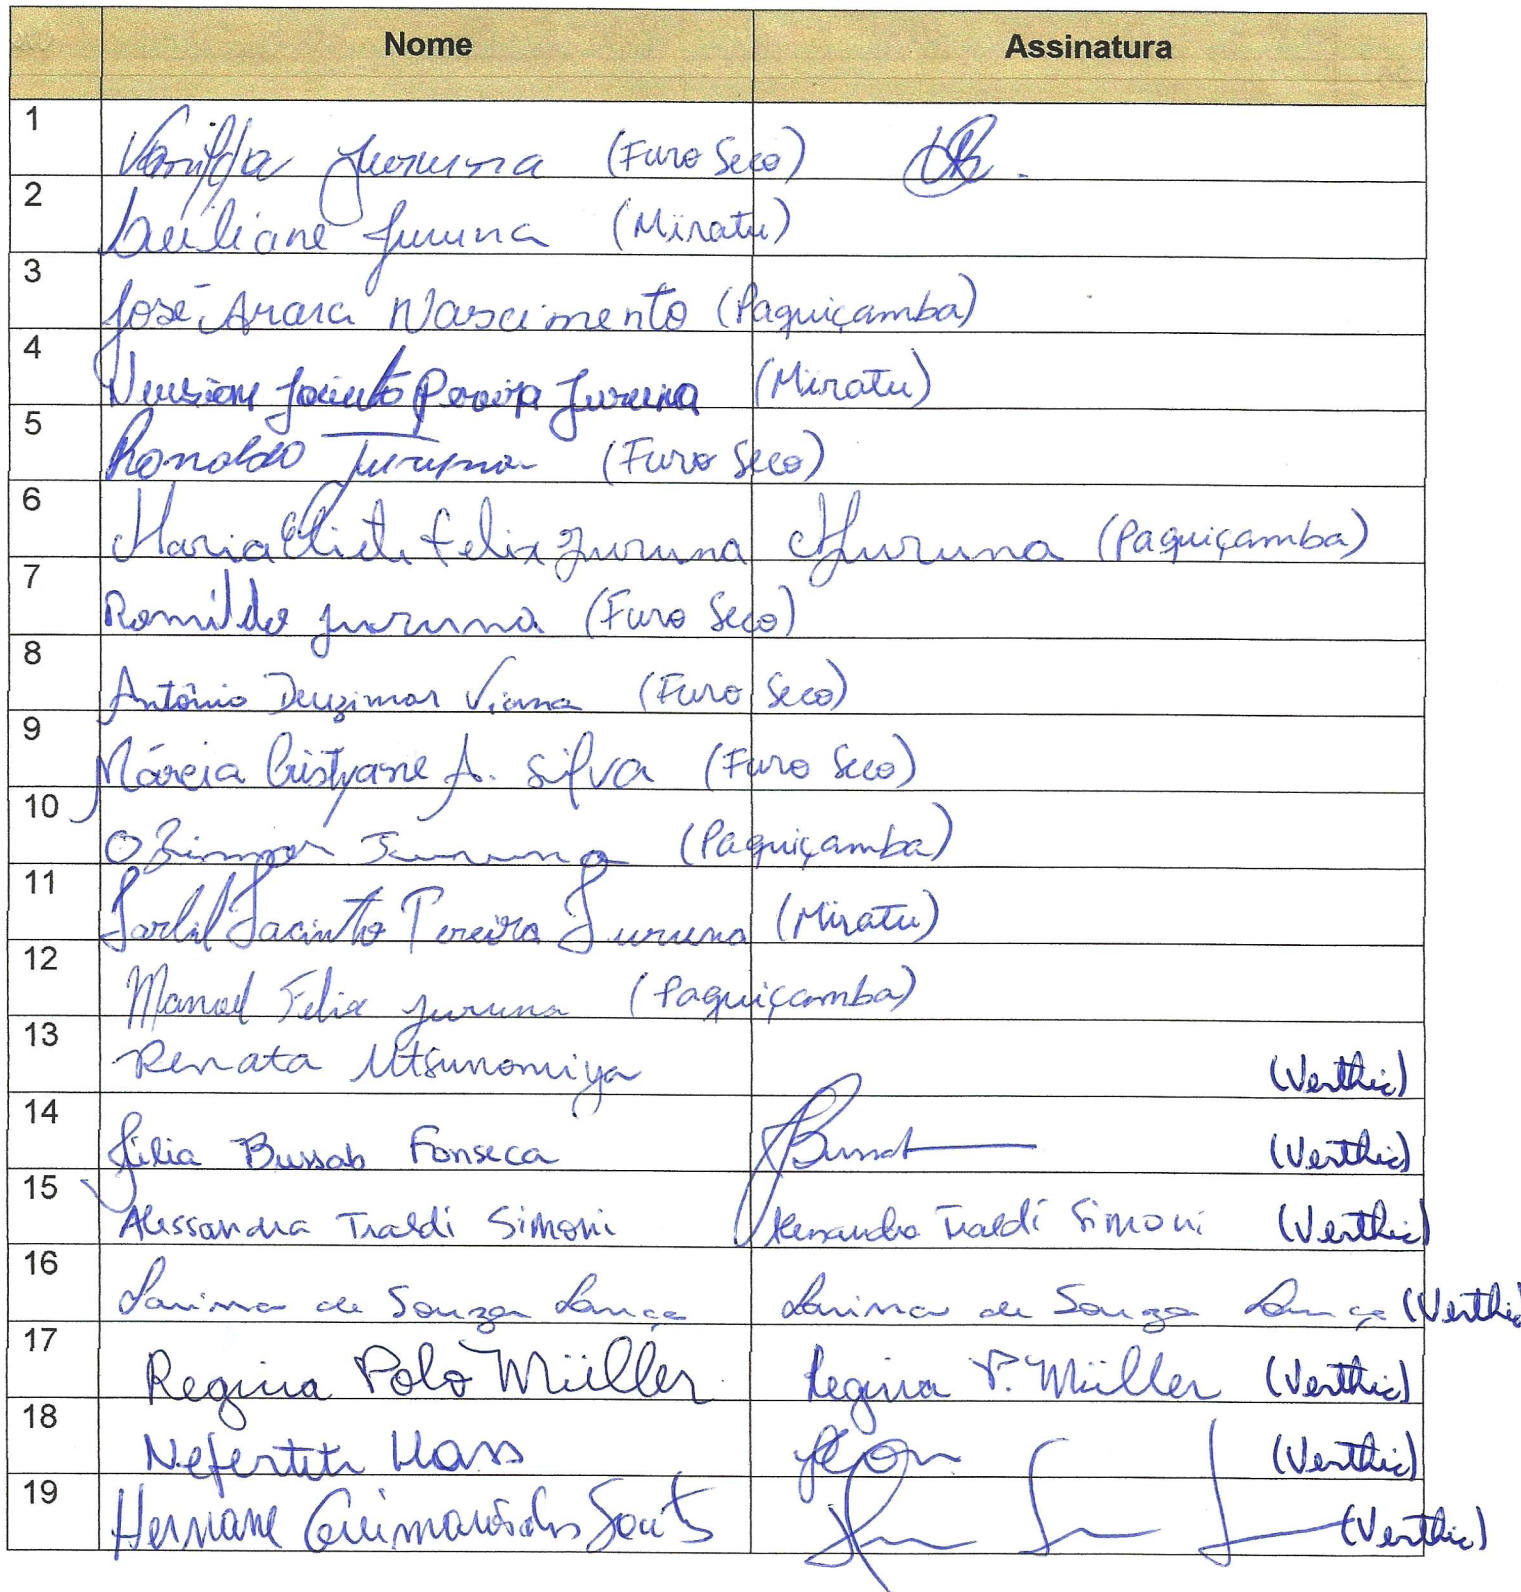 Nome Assinatura
1 Juruna (Furo Seco)
2 Juruna (Miratu)
3 José Arara Nascimento (Paquiçamba)
4 Jacinto Pereira Juruna (Miratu)
5 Ronaldo Juruna (Furo Seco)
6 Maria Felix Juruna Juruna (Paquiçamba)
7 Romildo juruna (Furo Seco)
8 Antônio Deuzimar Viana (Furo Seco)
9 Márcia Cristyane A. Silva (Furo Seco)
10 Ozimar Juruna (Paquiçamba)
11 Jacinto Pereira Juruna (Miratu)
12 Manoel Felix juruna (Paquiçamba)
13 Renata Utsunomiya (Verthic)
14 Júlia Bussab Fonseca (Verthic)
15 Alessandra Traldi Simoni Alessandra Traldi Simoni (Verthic)
16 de Souza de Souza (Verthic)
17 Regina Polo Müller Regina P. Müller (Verthic)
18 Nefertiti (Verthic)
19 Hernane Guimarães dos (Verthic)